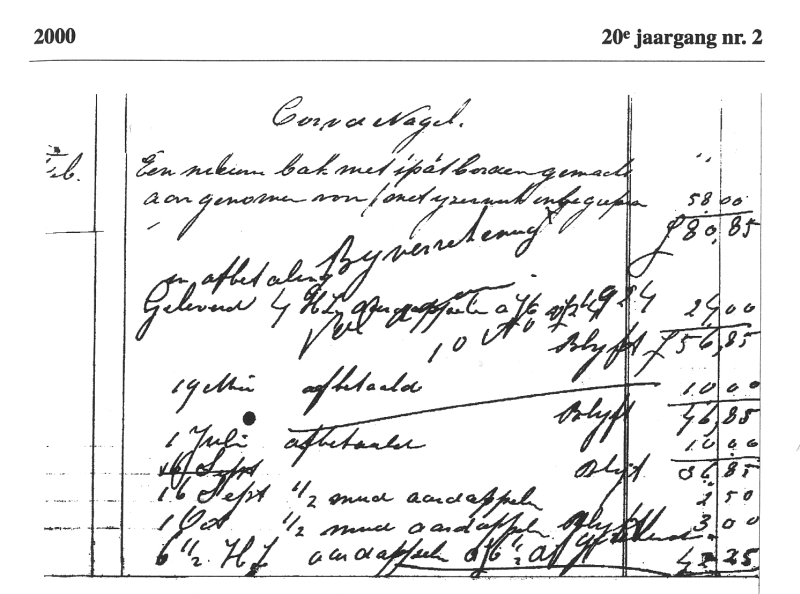 2000 20e jaargang nr. 2
Corn de Nagel.
Een nieuwen bak met spatborden gemaakt
aangenomen voor / met yzerwerk inbegrepen 58 00
ƒ 80,85
By verrekening
in afbetaling
Geleverd 4 HL aardappelen a ƒ6 24 00
10 Blyft ƒ 56,85
19 Mei afbetaald 10 00
Blyft 46,85
1 Juli afbetaald 10 00
16 Sept Blyft 36 85
16 Sept 1/2 mud aardappelen 2 50
1 Oct 1/2 mud aardappelen 3 00
6 1/2 HL aardappelen a ƒ6 1/2 42 25